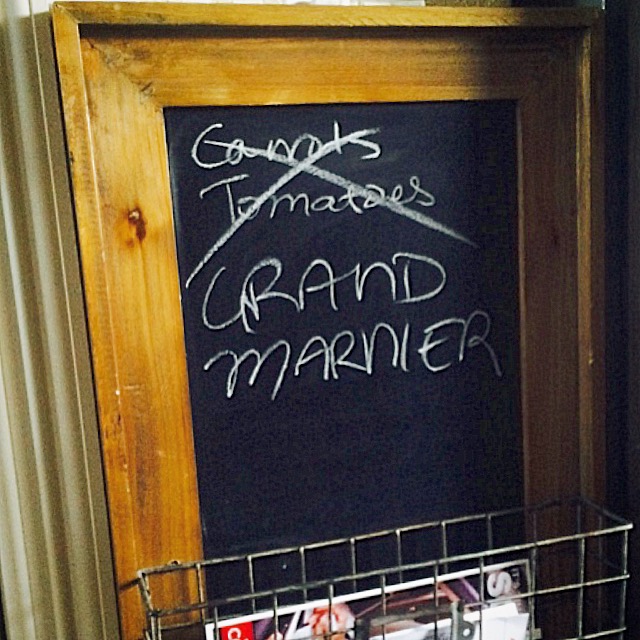 Carrots
Tomatoes
GRAND
MARNIER